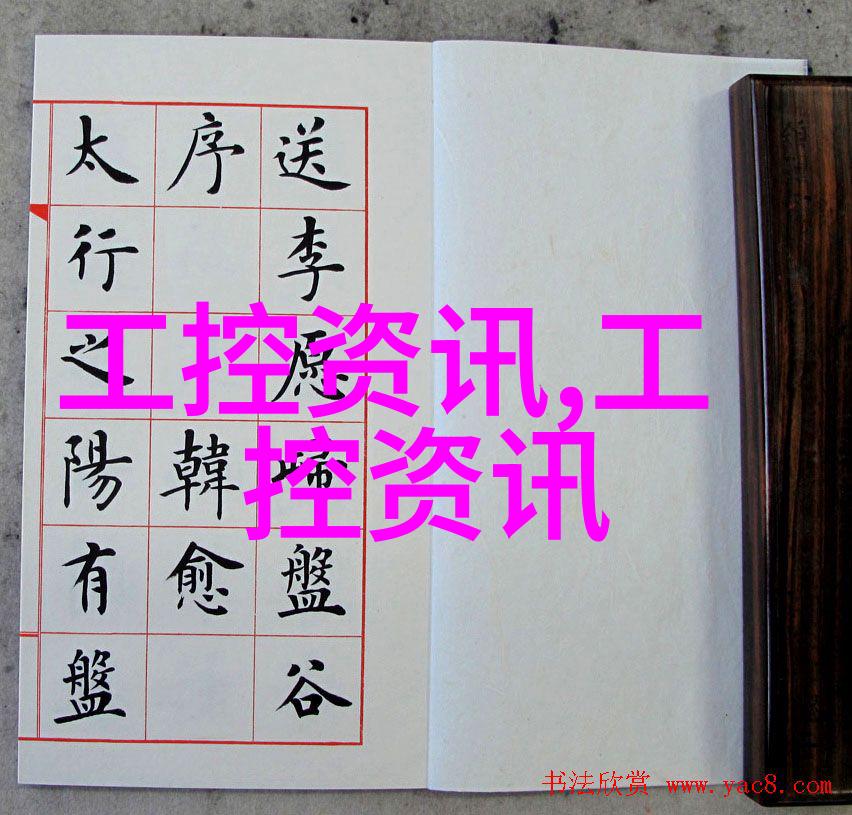 送李愿歸盤谷
序 韓愈
太行之陽有盤
工控资讯,工
控资讯
书法欣赏 www.yac8.com